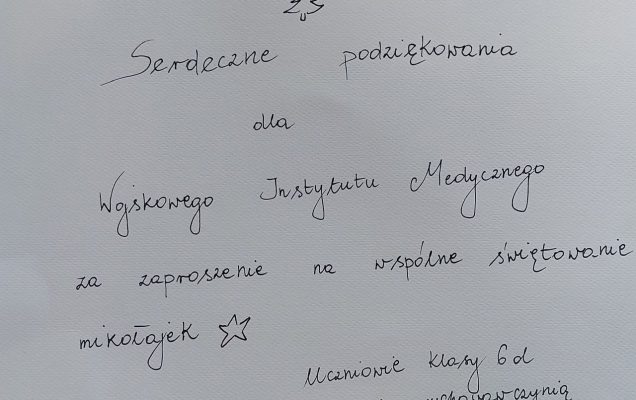 Serdeczne podziękowania
dla
Wojskowego Instytutu Medycznego
za zaproszenie na wspólne świętowanie
mikołajek
Uczniowie klasy 6d
wychowawczynią